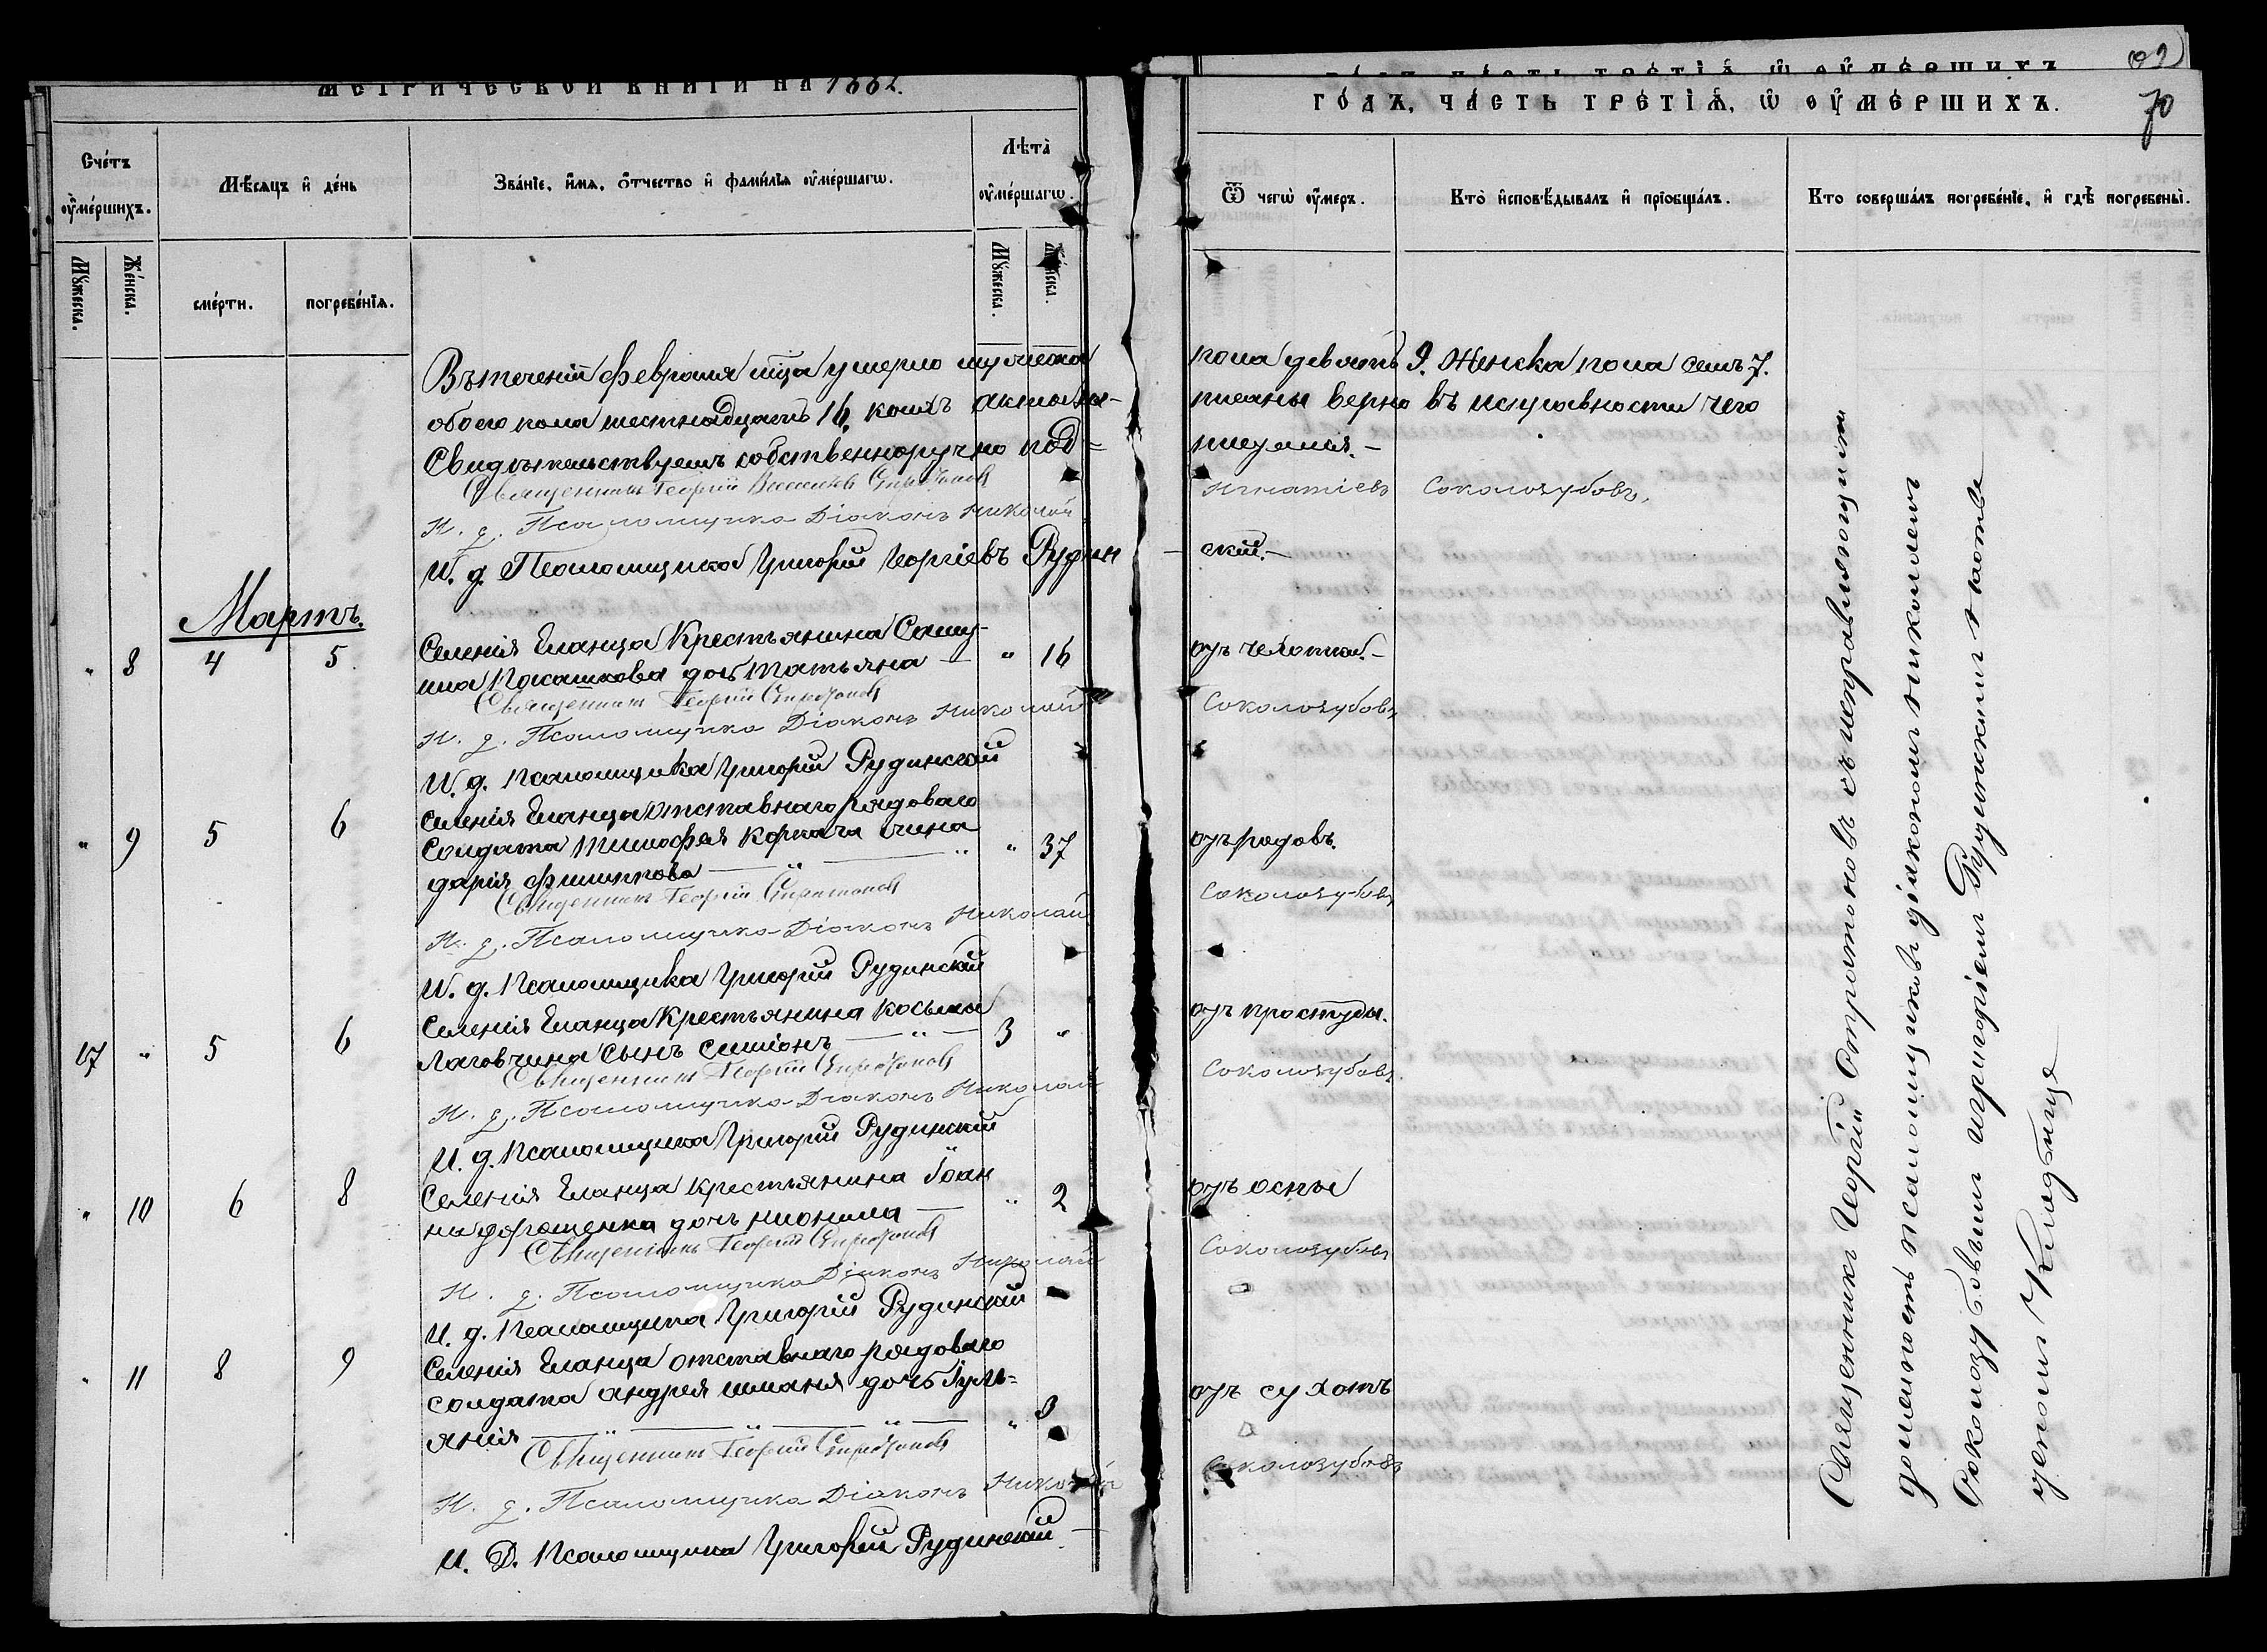 МЕТРИЧЕСКОЙ КНИГИ НА 1882.
Счéтъ оу҆мéршихъ.
Мѣ́сяцъ и҆ дéнь
Звáнїе, и҆́мѧ, ѻ҆́тчество и҆ фамѝлїѧ оу҆мéршагѡ.
Лѣ̑та̀ оу҆мéршагѡ.
Мꙋ́жеска.
Жéнска.
смéрти.
погребéнїѧ.
Мꙋ́жеска.
Жéнска.
Въ теченіи февраля мца умерло мужеска
обоего пола шестнадцать 16, коихъ акты за-
Свидѣтельствуемъ собственноручно под=
Священникъ Георгій Спиридоновъ
И. д. Псаломщика Діаконъ Николай
И. д. Псаломщика Григорій Георгіевъ Рудин
Мартъ.
" 8 4 5
Селенія Еланца Крестьянина Саму-
ила дочь Татьяна — " 16
Священникъ Георгій Спиридоновъ
И. д. Псаломщика Діаконъ Николай
И. д. Псаломщика Григорій Рудинскій
" 9 5 6
Селенія Еланца отставнаго рядоваго
Солдата Тимофея жина " 37
дарія
Священникъ Георгій Спиридоновъ
И. д. Псаломщика Діаконъ Николай
И. д. Псаломщика Григорій Рудинскій
17 " 5 6
Селенія Еланца Крестьянина косьмы
Лаговчина сынъ симіонъ — " — 3 "
Священникъ Георгій Спиридоновъ
И. д. Псаломщика Діаконъ Николай
И. д. Псаломщика Григорій Рудинскій
" 10 6 8
Селенія Еланца крестьянина Іоан
на дорошенка дочь — " 2
Священникъ Георгій Спиридоновъ
И. д. Псаломщика Діаконъ Николай
И. д. Псаломщика Григорій Рудинскій
" 11 8 9
Селенія Еланца отставнаго рядоваго
солдата андрея дочь Іулі=
янія — " — " — " 3
Священникъ Георгій Спиридоновъ
И. д. Псаломщика Діаконъ Николай
И. Д. Псаломщика Григорій Рудинскій
ГÓДЪ, ЧÁСТЬ ТРÉТЇѦ, Ѡ ОУ҆МÉРШИХЪ.
70
Ѿ чегѡ̀ оу҆́меръ.
Ктò и҆сповѣ́дывалъ и҆ прїобщáлъ.
Кто совершáлъ погребéнїе, и҆ гдѣ̀ погребены̀.
пола девять 9. Женска пола семъ 7.
писаны верно въ исправности чего
писуемся. —
Игнатіевъ Соколозубовъ.
скій. —
отъ чехотки. —
Соколозубовъ
отъ родовъ.
Соколозубовъ
отъ простуды.
Соколозубовъ.
отъ оспы
Соколозубовъ
отъ сухотъ
Соколозубовъ
Священникъ Георгій Спиридоновъ съ исправляющими
должность псаломщиковъ діакономъ николаемъ
Соколозубовымъ игригоріемъ Рудинскимъ
Кладбищѣ